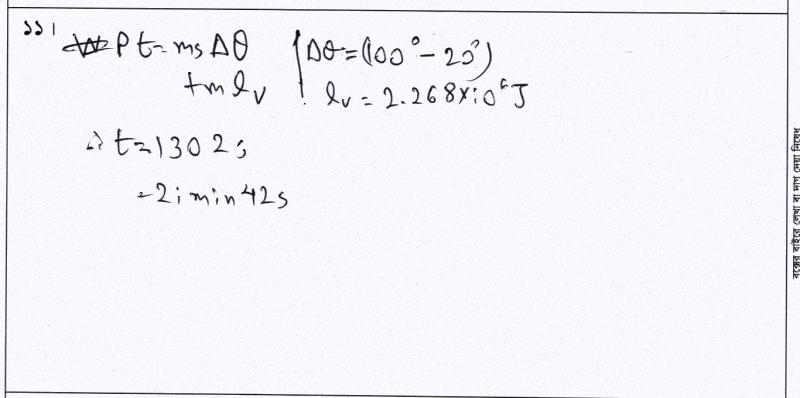 ১১।
Pt = ms Δθ | Δθ = (100° - 20°)
+ m lv | lv = 2.268×10⁶ J
∴ t = 1302 s
= 21 min 42 s
বক্সের বাইরে লেখা বা দাগ দেয়া নিষেধ